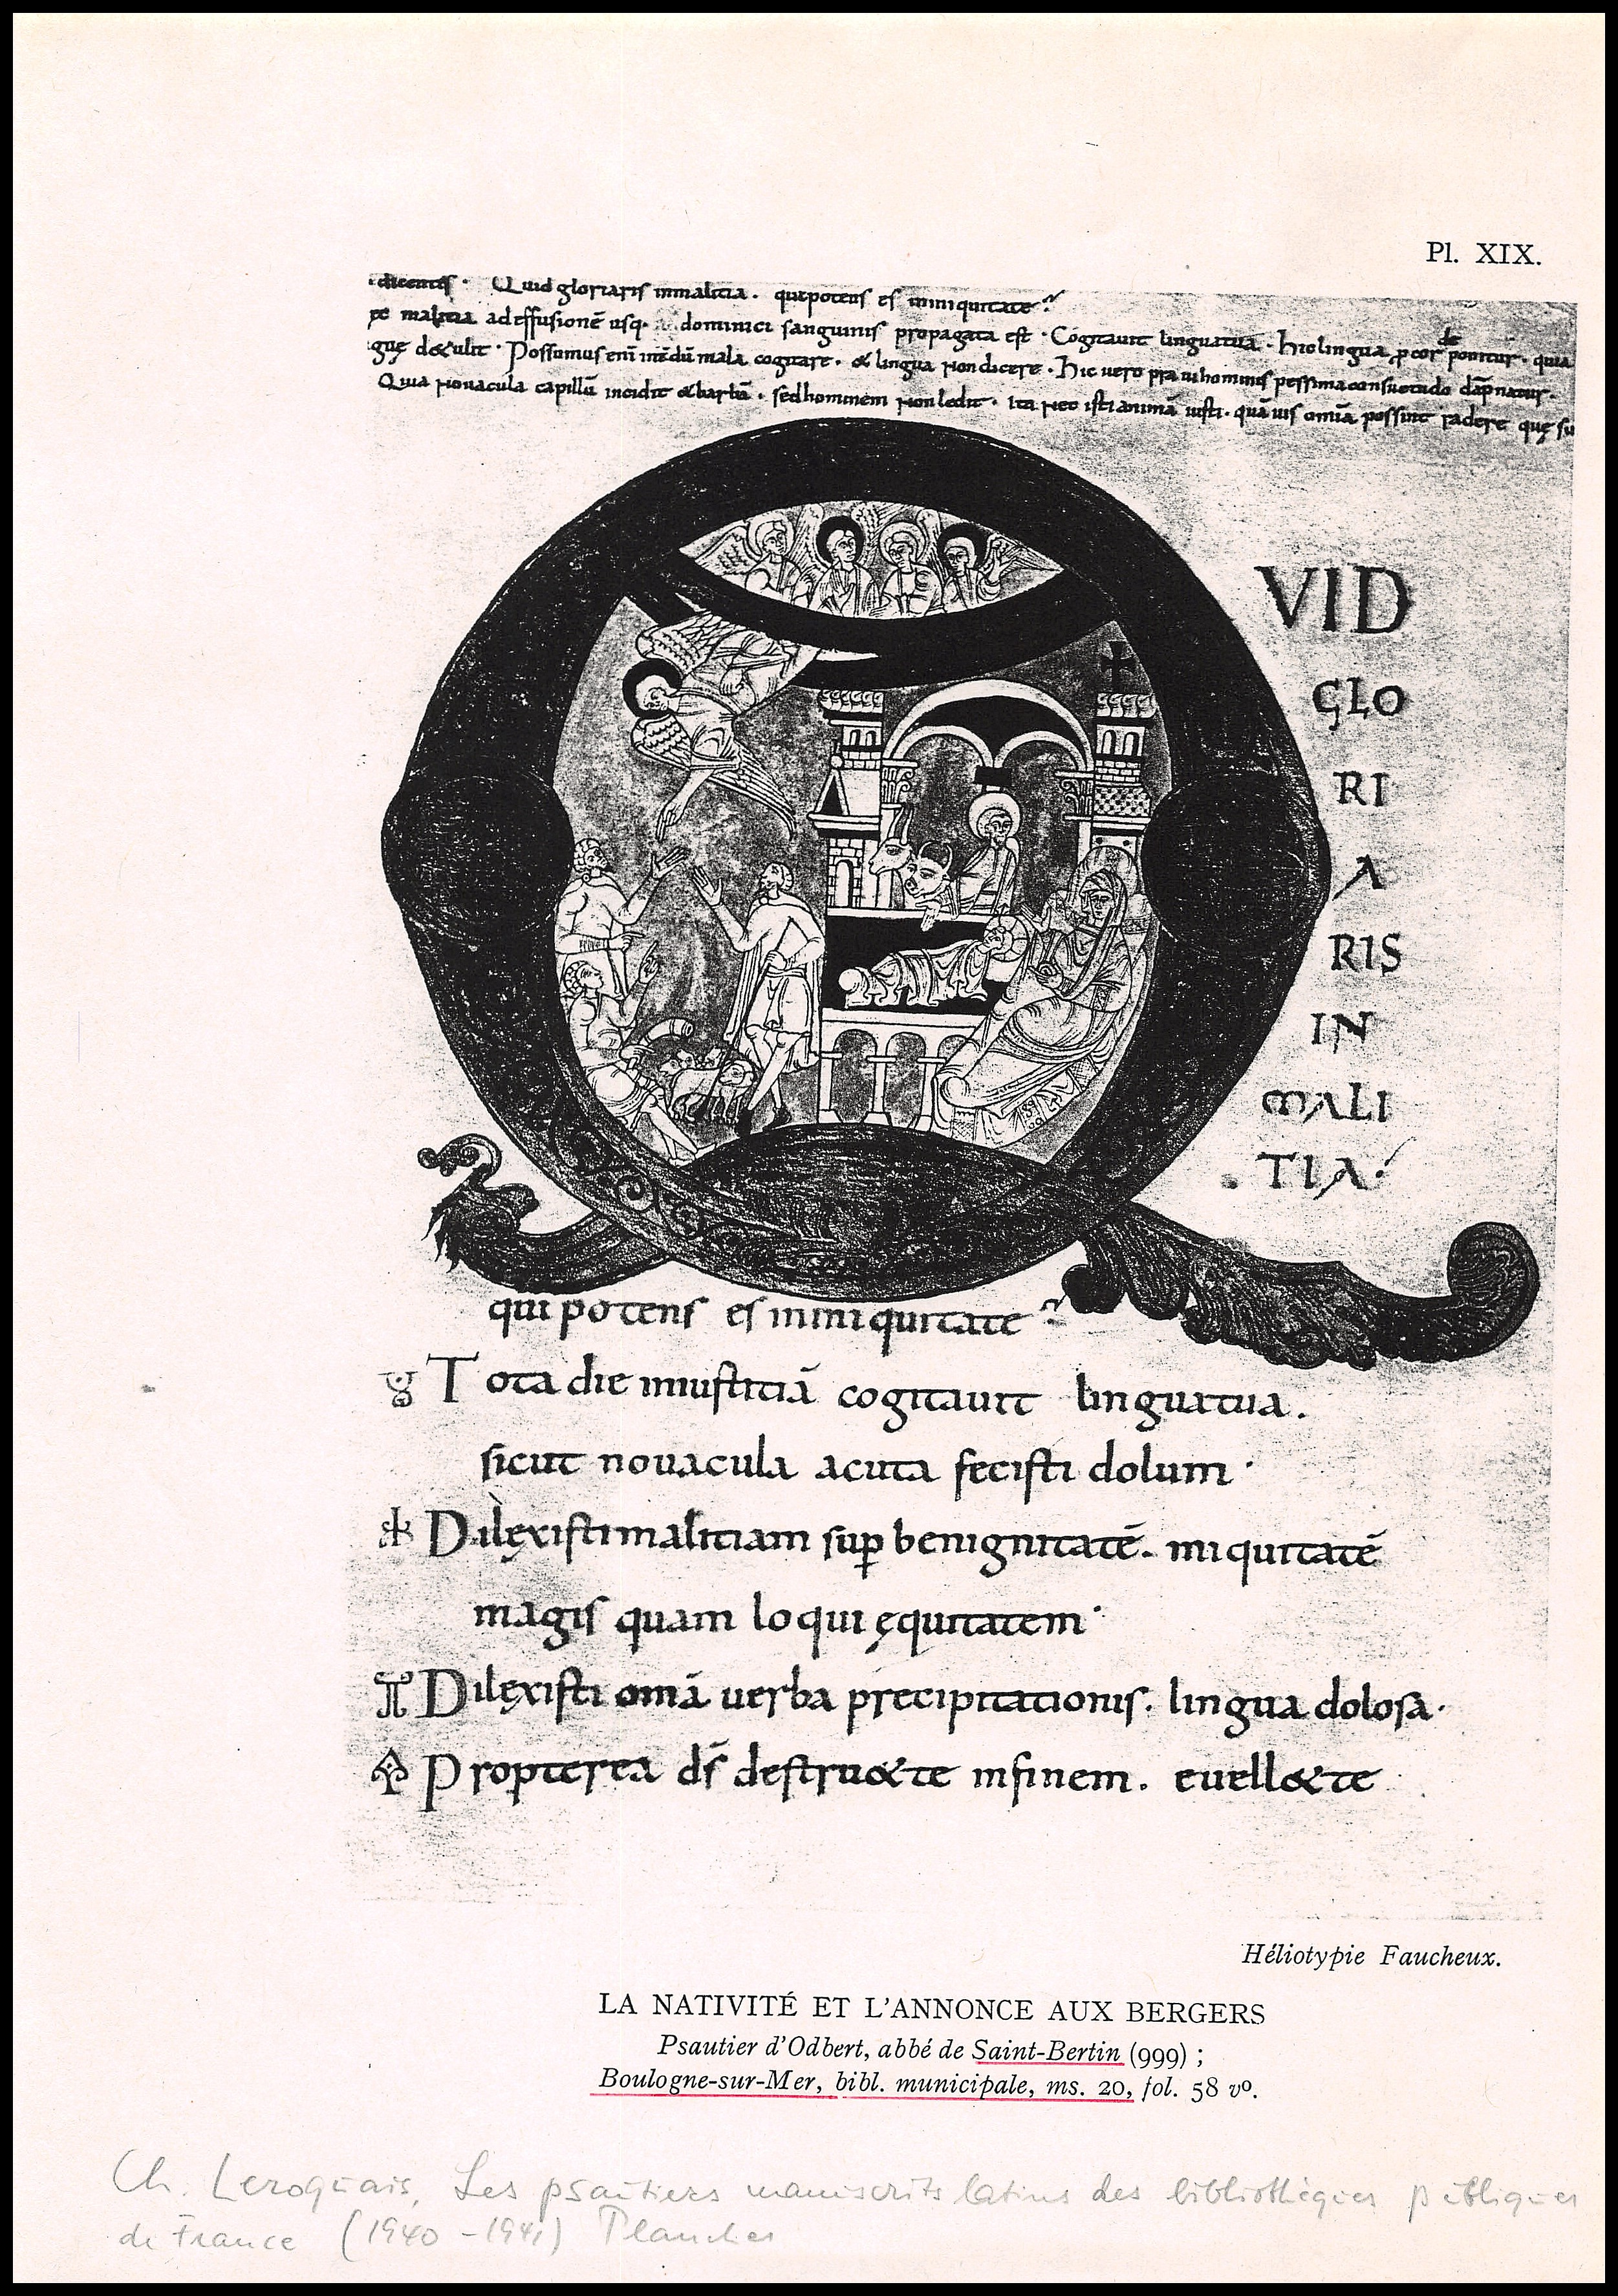 Pl. XIX.
dicentis · Quid gloriaris inmalicia · quipotens es ininiquitate ?
pe malitia adeffusionē usq. dominici sanguinis propagata est · Cogitauit linguatua · Hic lingua, p cor de ponitur · quia
guę dođulit · Possumus enī īnedū mala cogitare · & lingua non dicere · Hic uero praui hominis pessima consuetudo dāpnatur ·
Quia nouacula capillū incidit & barbā · sedhominem nonledit · ita nec isti animā iusti · quāuis omīa possint radere quę su
Q VID
GLO
RI
A
RIS
IN
MALI
TIA·
qui potens es ininiquitate ?
Tota die iniustitiā cogitauit linguatua .
sicut nouacula acuta fecisti dolum ·
Dilęxisti malitiam sup benignitatē . iniquitatē
magis quam loqui ęquitatem ·
Dilęxisti omīa uerba precipitationis . lingua dolosa ·
Propterea dš destru&te infinem . euell&te
Héliotypie Faucheux.
LA NATIVITÉ ET L'ANNONCE AUX BERGERS
Psautier d'Odbert, abbé de Saint-Bertin (999) ;
Boulogne-sur-Mer, bibl. municipale, ms. 20, fol. 58 vº.
Ch. Leroquais, Les psautiers manuscrits latins des bibliothèques publiques
de France (1940-1941) Planches